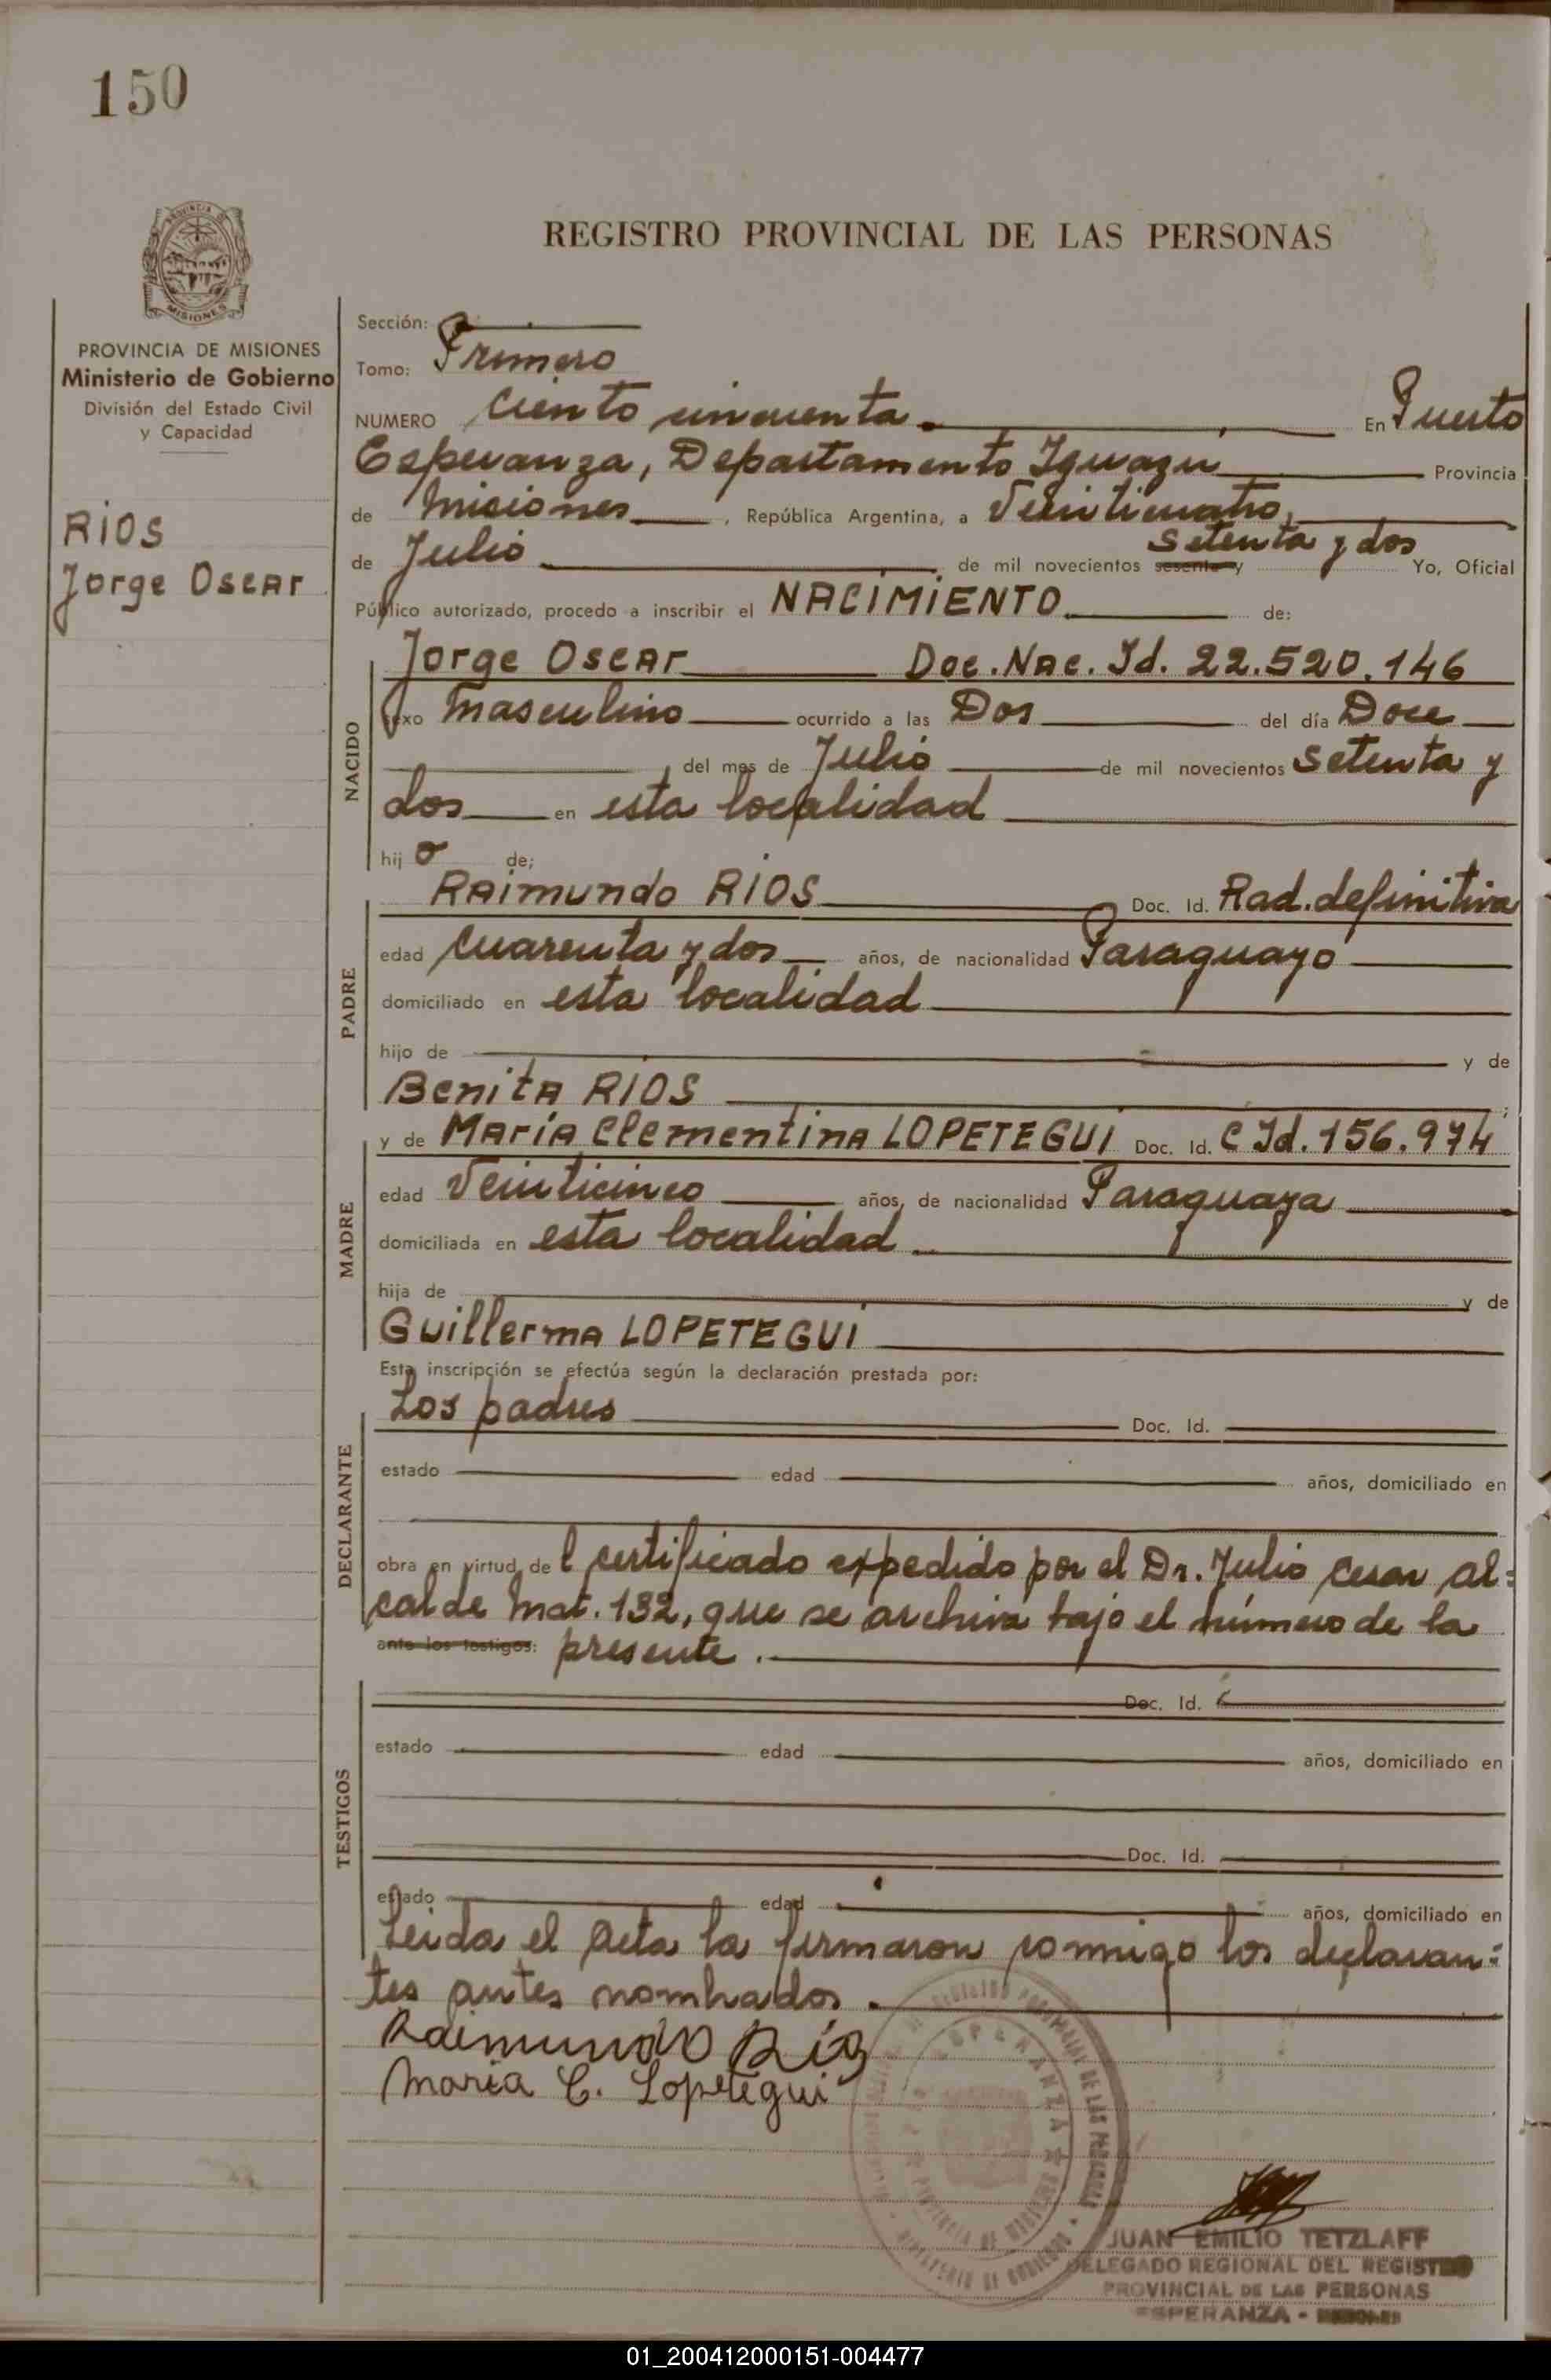 150
PROVINCIA DE
MISIONES
REGISTRO PROVINCIAL DE LAS PERSONAS
PROVINCIA DE MISIONES
Ministerio de Gobierno
División del Estado Civil
y Capacidad
RIOS
Jorge Oscar
Sección:
Tomo: Primero
NUMERO Ciento cincuenta En Puerto
Esperanza, Departamento Iguazu Provincia
de Misiones, República Argentina, a Veinticuatro,
de Julio de mil novecientos sesenta y setenta y dos Yo, Oficial
Público autorizado, procedo a inscribir el NACIMIENTO de:
NACIDO
Jorge Oscar Doc. Nac. Id. 22.520.146
sexo Masculino ocurrido a las Dos del día Doce
del mes de Julio de mil novecientos setenta y
dos en esta localidad
hijo de:
PADRE
Raimundo RIOS Doc. Id. Rad. definitiva
edad Cuarenta y dos años, de nacionalidad Paraguayo
domiciliado en esta localidad
hijo de y de
Benita RIOS
MADRE
y de María Clementina LOPETEGUI Doc. Id. C Id. 156.974
edad Veinticinco años, de nacionalidad Paraguaya
domiciliada en esta localidad
hija de y de
Guillerma LOPETEGUI
Esta inscripción se efectúa según la declaración prestada por:
DECLARANTE
Los padres Doc. Id.
estado edad años, domiciliado en
obra en virtud del certificado expedido por el Dr. Julio Cesar Al=
calde Mat. 132, que se archiva bajo el número de la
ante los testigos: presente.
TESTIGOS
Doc. Id.
estado edad años, domiciliado en
Doc. Id.
estado edad años, domiciliado en
Leida el Acta la firmaron conmigo los declaran=
tes antes nombrados.
Raimundo Rios
Maria C. Lopetegui
JUAN EMILIO TETZLAFF
DELEGADO REGIONAL DEL REGISTRO
PROVINCIAL DE LAS PERSONAS
ESPERANZA - MISIONES
01_200412000151-004477